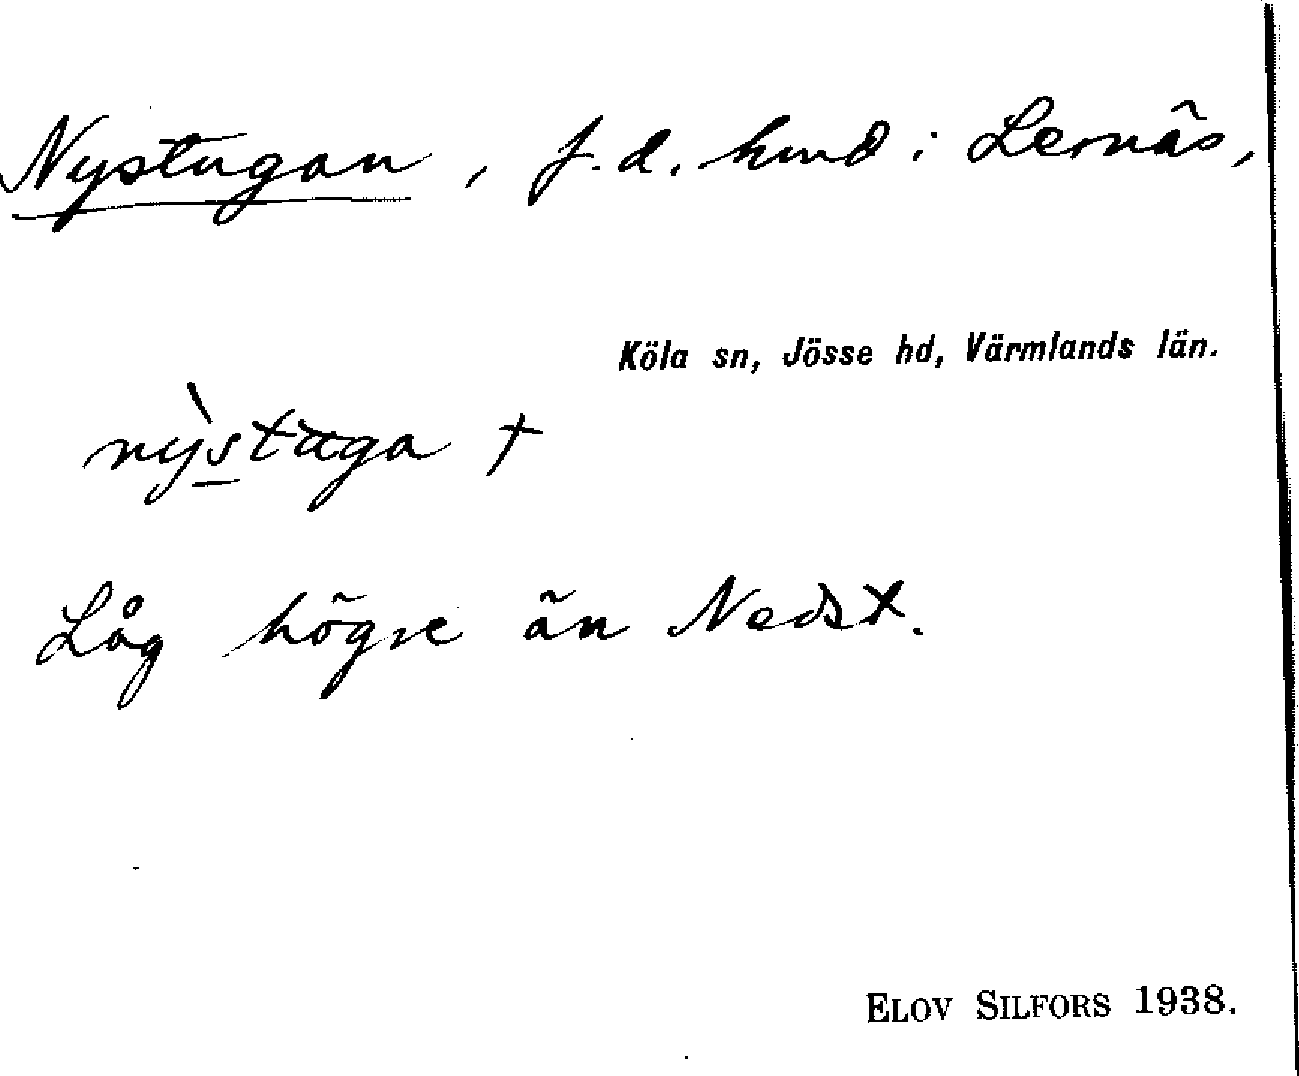 Nystugan, f.d. hmd i Lernäs,
Köla sn, Jösse hd, Värmlands län.
nỳstuga †
Låg högre än Nedst.
ELOV SILFORS 1938.